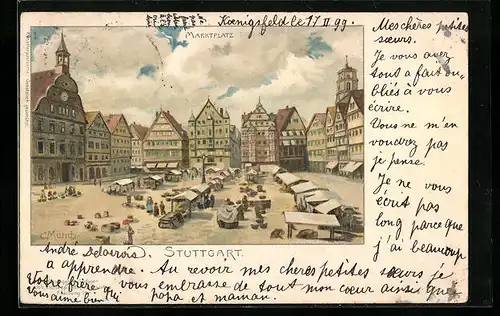 Kœnigsfeld le 17 II 99.
MARKTPLATZ
Mes chères petites
sœurs.
Je vous avez
tous a fait ou-
bliés à vous
écrire.
Vous ne m'en
voudrez pas
je pense.
Je ne vous
écrit pas
long parce que
j'ai beaucoup
C. Münch
STUTTGART.
André Delacroix.
a apprendre. Au revoir mes cheres petites sœurs je
Votre frère qui vous embrasse de tout mon cœur ainsi que
vous aime bien papa et maman.